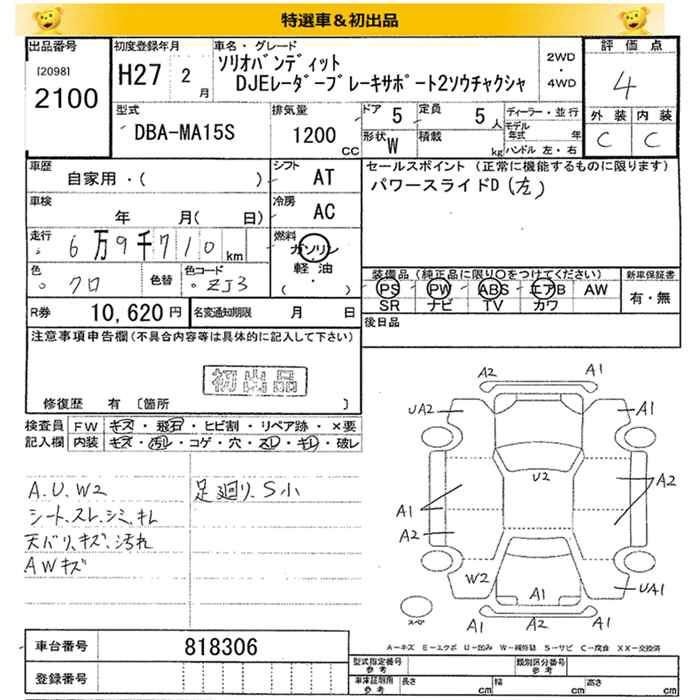 特選車＆初出品
出品番号
[2098]
2100
初度登録年月
H27 2 月
車名・グレード
ソリオバンディット
DJEレーダーブレーキサポート2ソウチャクシャ
2WD
・
4WD
評価点
4
外装 内装
C C
型式
DBA-MA15S
排気量
1200 CC
ドア 5
定員 5 人
形状 W
積載 kg
ディーラー・並行
モデル年式 年
ハンドル 左・右
車歴
自家用・( )
シフト AT
セールスポイント (正常に機能するものに限ります)
パワースライドD (左)
車検
年 月( 日)
冷房 AC
走行
6万9千710 km
燃料
ガソリン
軽油
(・)
色
クロ
色替
色コード
ZJ3
装備品 (純正品に限り〇をつけてください)
PS PW ABS エアB AW
SR ナビ TV カワ
新車保証書
有・無
R券 10,620円
名変通知期限 月 日
後日品
注意事項申告欄 (不具合内容等は具体的に記入して下さい)
初出品
修復歴 有 〔箇所 〕
検査員
記入欄
FW キズ・飛石・ヒビ割・リペア跡・×要
内装 キズ・汚レ・コゲ・穴・スレ・キレ・破レ
A.U.W2
シート.スレ.シミ.キレ
天バリ.キズ.汚れ
AWキズ
足廻り.S小
A2 A1
UA2 A1
U2
A1 A2
A2
W2 A1 UA1
A1 A2 A1
スペア
A－キズ E－エクボ U－凹み W－補修跡 S－サビ C－腐食 XX－交換済
車台番号 818306
登録番号
型式指定番号
参考
類別区分番号
参考
車庫証明用
参考
長さ cm
幅 cm
高さ cm